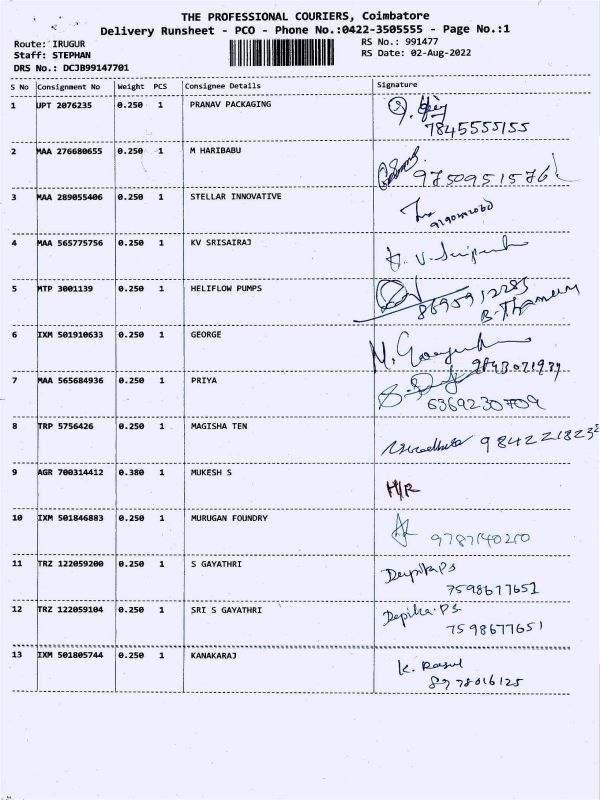 THE PROFESSIONAL COURIERS, Coimbatore
Delivery Runsheet - PCO - Phone No.:0422-3505555 - Page No.:1
Route: IRUGUR RS No.: 991477
Staff: STEPHAN RS Date: 02-Aug-2022
DRS No.: DCJB99147701
S No Consignment No Weight PCS Consignee Details Signature
1 UPT 2076235 0.250 1 PRANAV PACKAGING
7845555155
2 MAA 276680655 0.250 1 M HARIBABU
9750951576
3 MAA 289055406 0.250 1 STELLAR INNOVATIVE
4 MAA 565775756 0.250 1 KV SRISAIRAJ
5 MTP 3001139 0.250 1 HELIFLOW PUMPS
8695912285
6 IXM 501910633 0.250 1 GEORGE
7 MAA 565684936 0.250 1 PRIYA
6369230709
8 TRP 5756426 0.250 1 MAGISHA TEN
9842218232
9 AGR 700314412 0.380 1 MUKESH S
H/R
10 IXM 501846883 0.250 1 MURUGAN FOUNDRY
9787140210
11 TRZ 122059200 0.250 1 S GAYATHRI
Deepika PS
7598677651
12 TRZ 122059104 0.250 1 SRI S GAYATHRI
Depika. PS
7598677651
13 IXM 501805744 0.250 1 KANAKARAJ
8978016125